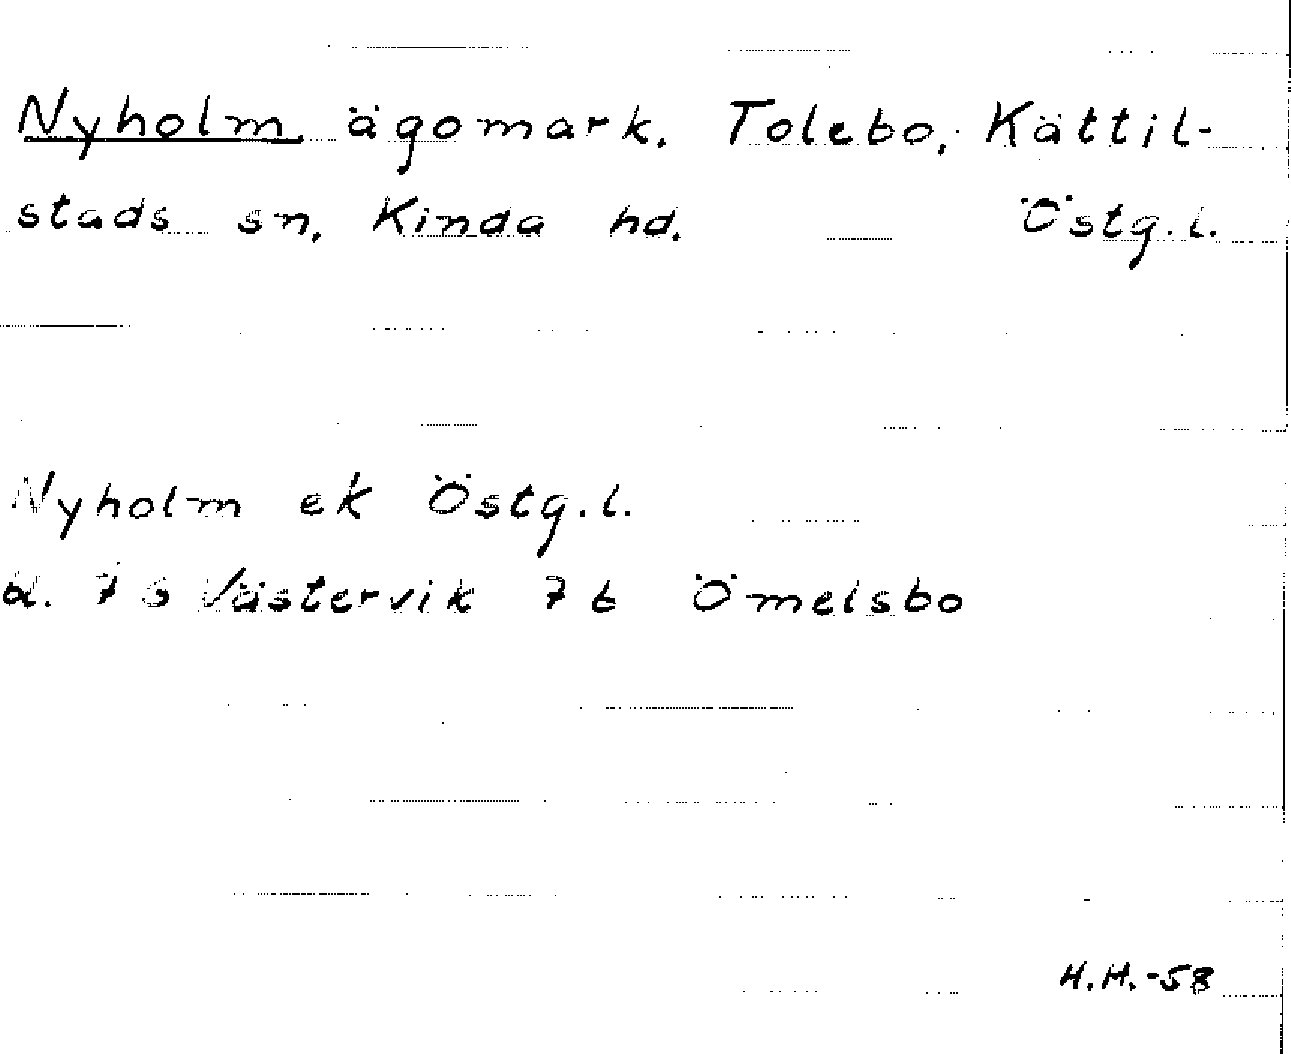 Nyholm ägomark. Tolebo, Kättil-
stads sn, Kinda hd. Östg.l.
Nyholm ek Östg.l.
bl. 7 6 Västervik 7 6 Ömelsbo
H.H.-58